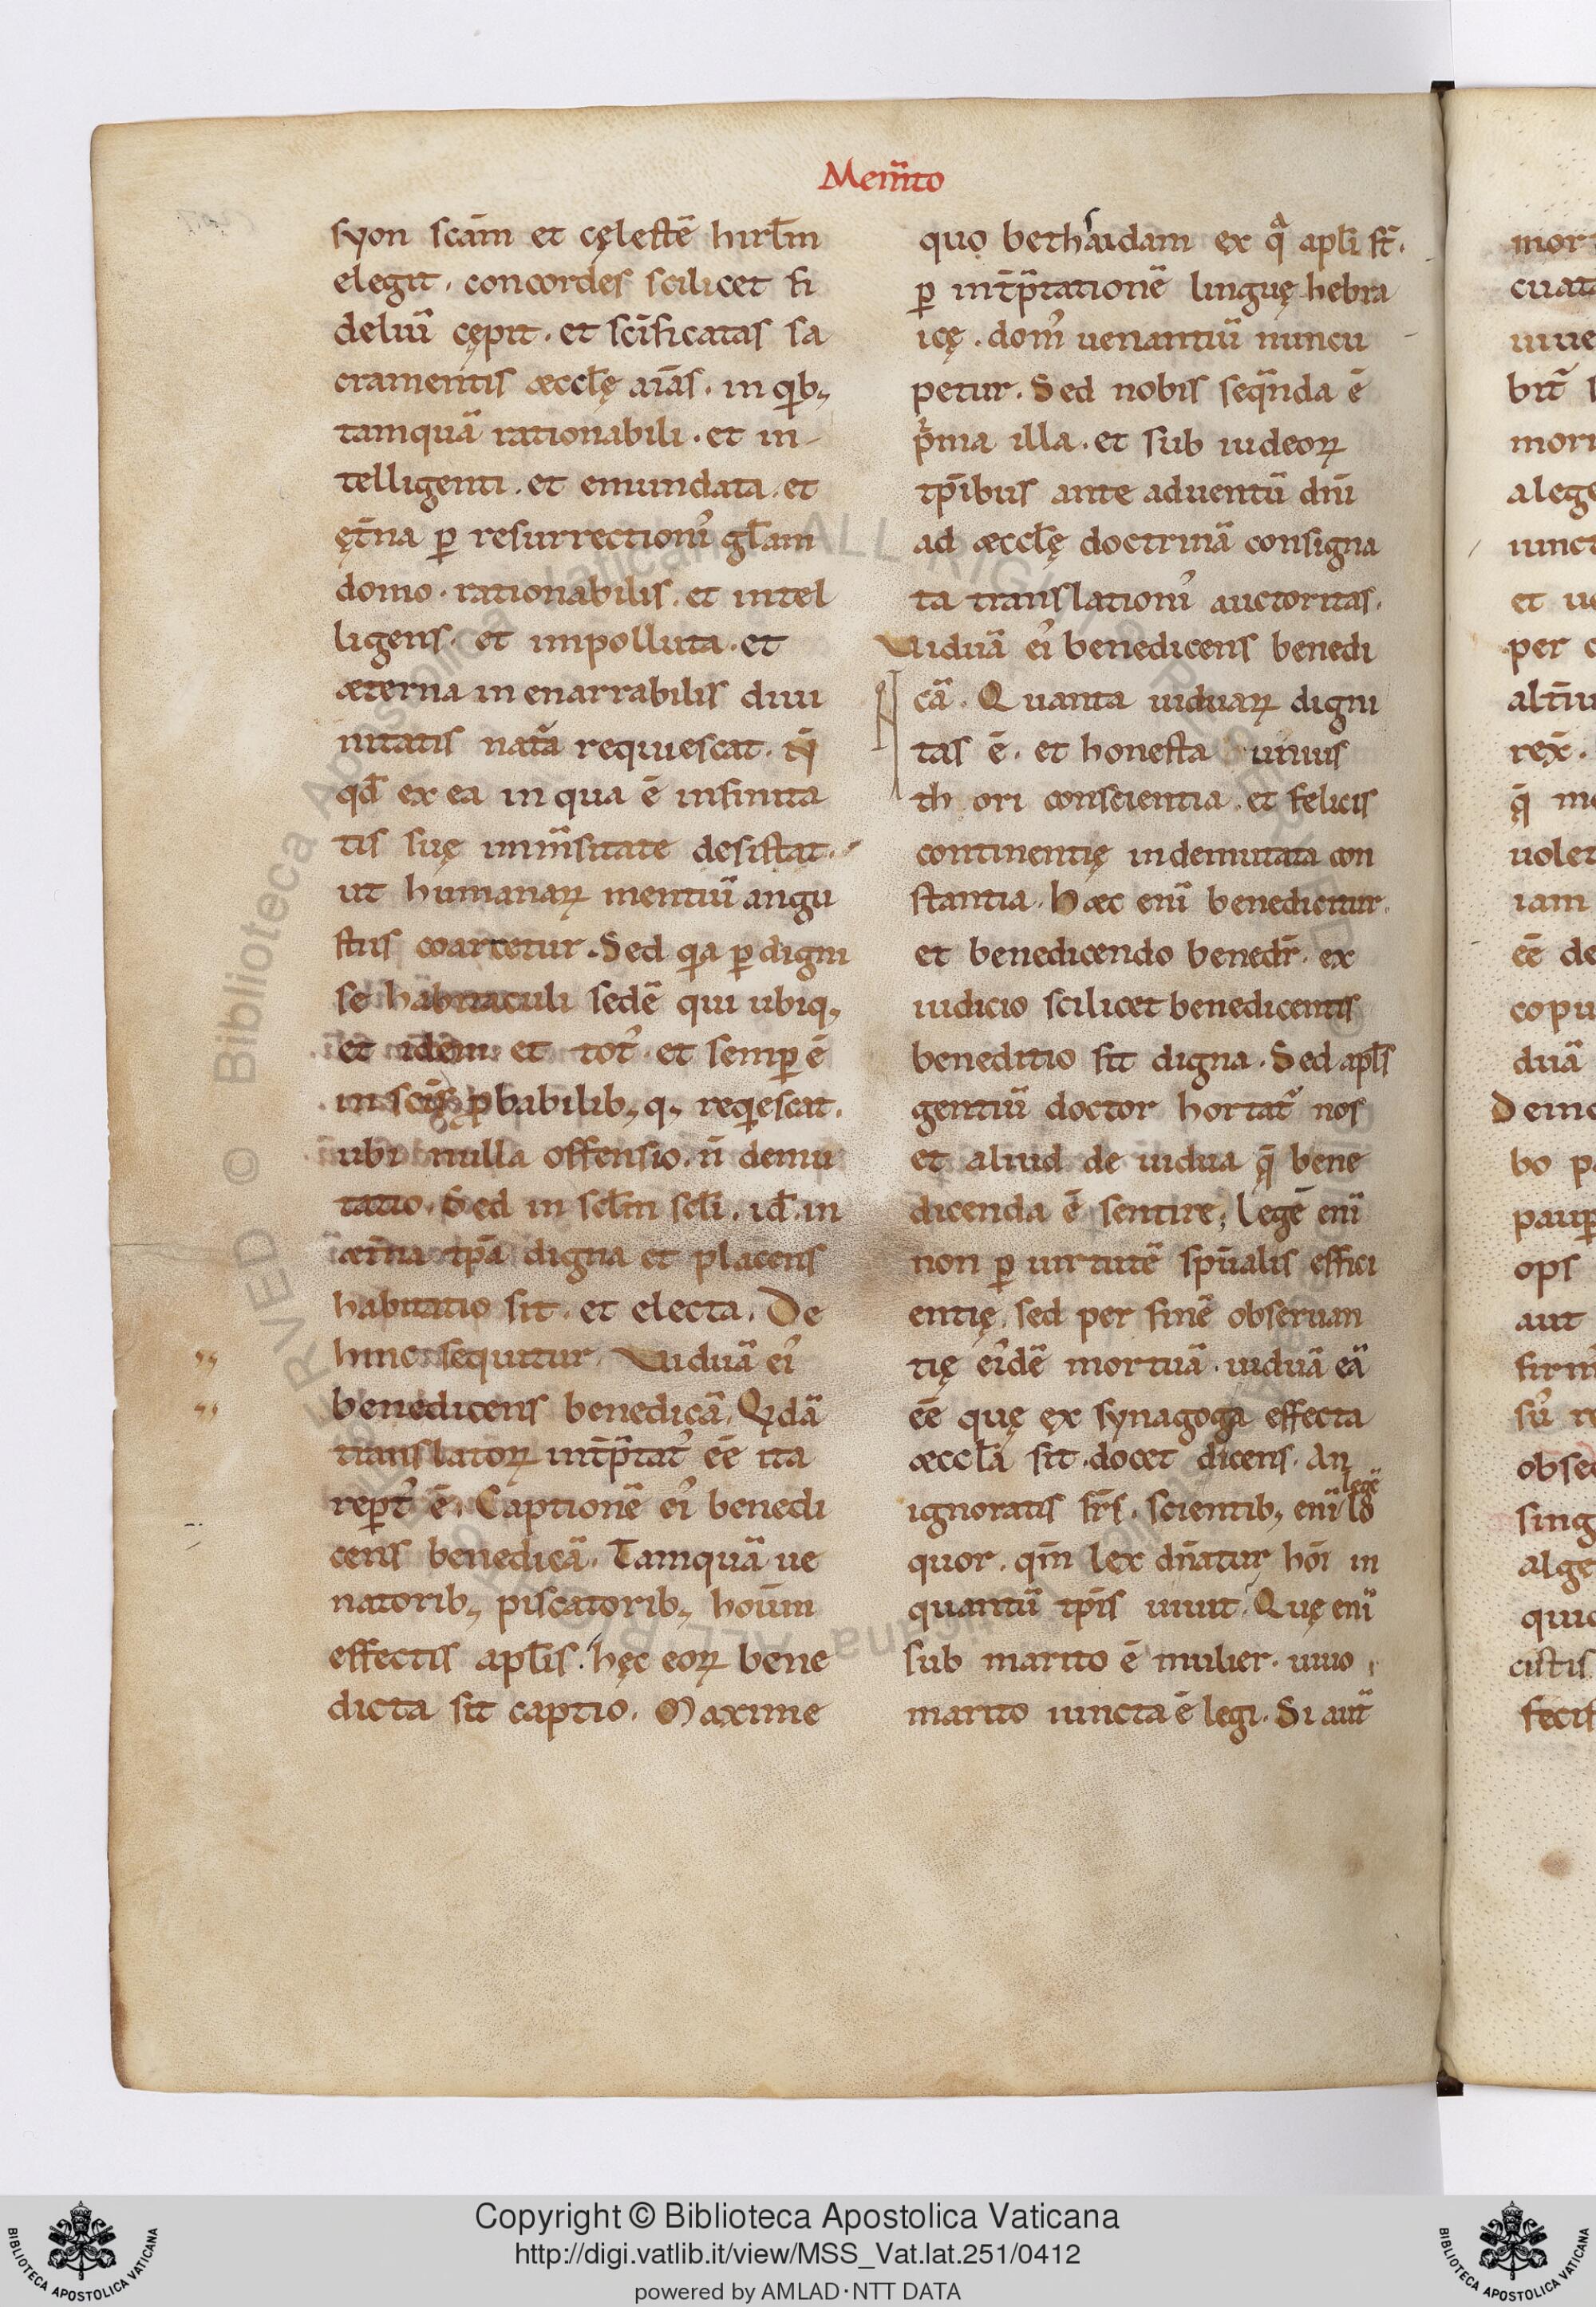 Mem̄to
syon scām et cęlestē hirl̄m
elegit . concordes scilicet fi
deliū cępit . et scīficatas sa
cramentis æccl̄ę aīas . in qib;
tamquā rationabili . et in
telligenti . et emundata . et
ęt̄na ꝑ resurrectionis gl̄am
domo . rationabilis . et intel
ligens . et impolluta . et
æterna inenarrabilis diui
nitatis natā requiescat .
qd̄ ex ea in qua ē infinita
tis suę imm̄sitate desistat .
ut humanaꝝ mentiū angu
stiis coartetur . Sed qia ꝑ digni
se habitaculi sedē qui ubiq;
et idem et tot᾿ . et semꝑ ē
in scīs ꝓbabilib; q; reqiescat .
ubi nulla offensio . n̄ demu
tatio . Sed in scl̄m scl̄i . id̄ . in
æt̄na tp̄a digna et placens
habitatio sit . et electa . De
hinc sequitur . Uiduā ei᾿
benedicens benedicā . Qidā
translatoꝝ int̄p̄tat᾿ eē ita
rept᾿ ē . Captionē ei᾿ benedi
cens benedicā . Tamquā ue
natorib; piscatorib; hoīum
effectis apl̄is . hęc eoꝝ bene
dicta sit captio . Maxime
quo bethsaidam ex qa apl̄i st̄ .
ꝑ int̄p̄tationē linguę hebra
icę . dom᾿ uenantiū nuncu
petur . Sed nobis seq̄nda ē
pima illa . et sub iudeoꝝ
tp̄ibus ante aduentū dn̄i
ad æccl̄ę doctrinā consigna
ta translationis auctoritas .
Uiduā ei᾿ benedicens benedi
cā . Quanta uiduaꝝ digni
tas ē . et honesta unius
th ori conscientia . et felicis
continentię indemutata con
stantia . Hæc enī benedicitur .
et benedicendo benedr̄ . ex
iudicio scilicet benedicentis
beneditio sit digna . Sed apl̄s
gentiū doctor hortat᾿ nos
et aliud de uidua q̄ bene
dicenda ē sentire ; Legē enī
non ꝑ uirtutē sp̄ualis effici
entię . sed per finē obseruan
tię ei᾿dē mortuā . uiduā eā
eē quę ex synagoga effecta
æccl̄a sit . docet dicens . An
ignoratis fr̄s . scientib; enī legē lo
quor . qm̄ lex dn̄atur hoī in
quantū tp̄is uiuit . Quę enī
sub marito ē mulier . uiuo
marito iuncta ē legi . Si aūt
Copyright © Biblioteca Apostolica Vaticana
http://digi.vatlib.it/view/MSS_Vat.lat.251/0412
powered by AMLAD·NTT DATA
BIBLIOTECA APOSTOLICA VATICANA
BIBLIOTECA APOSTOLICA VATICANA